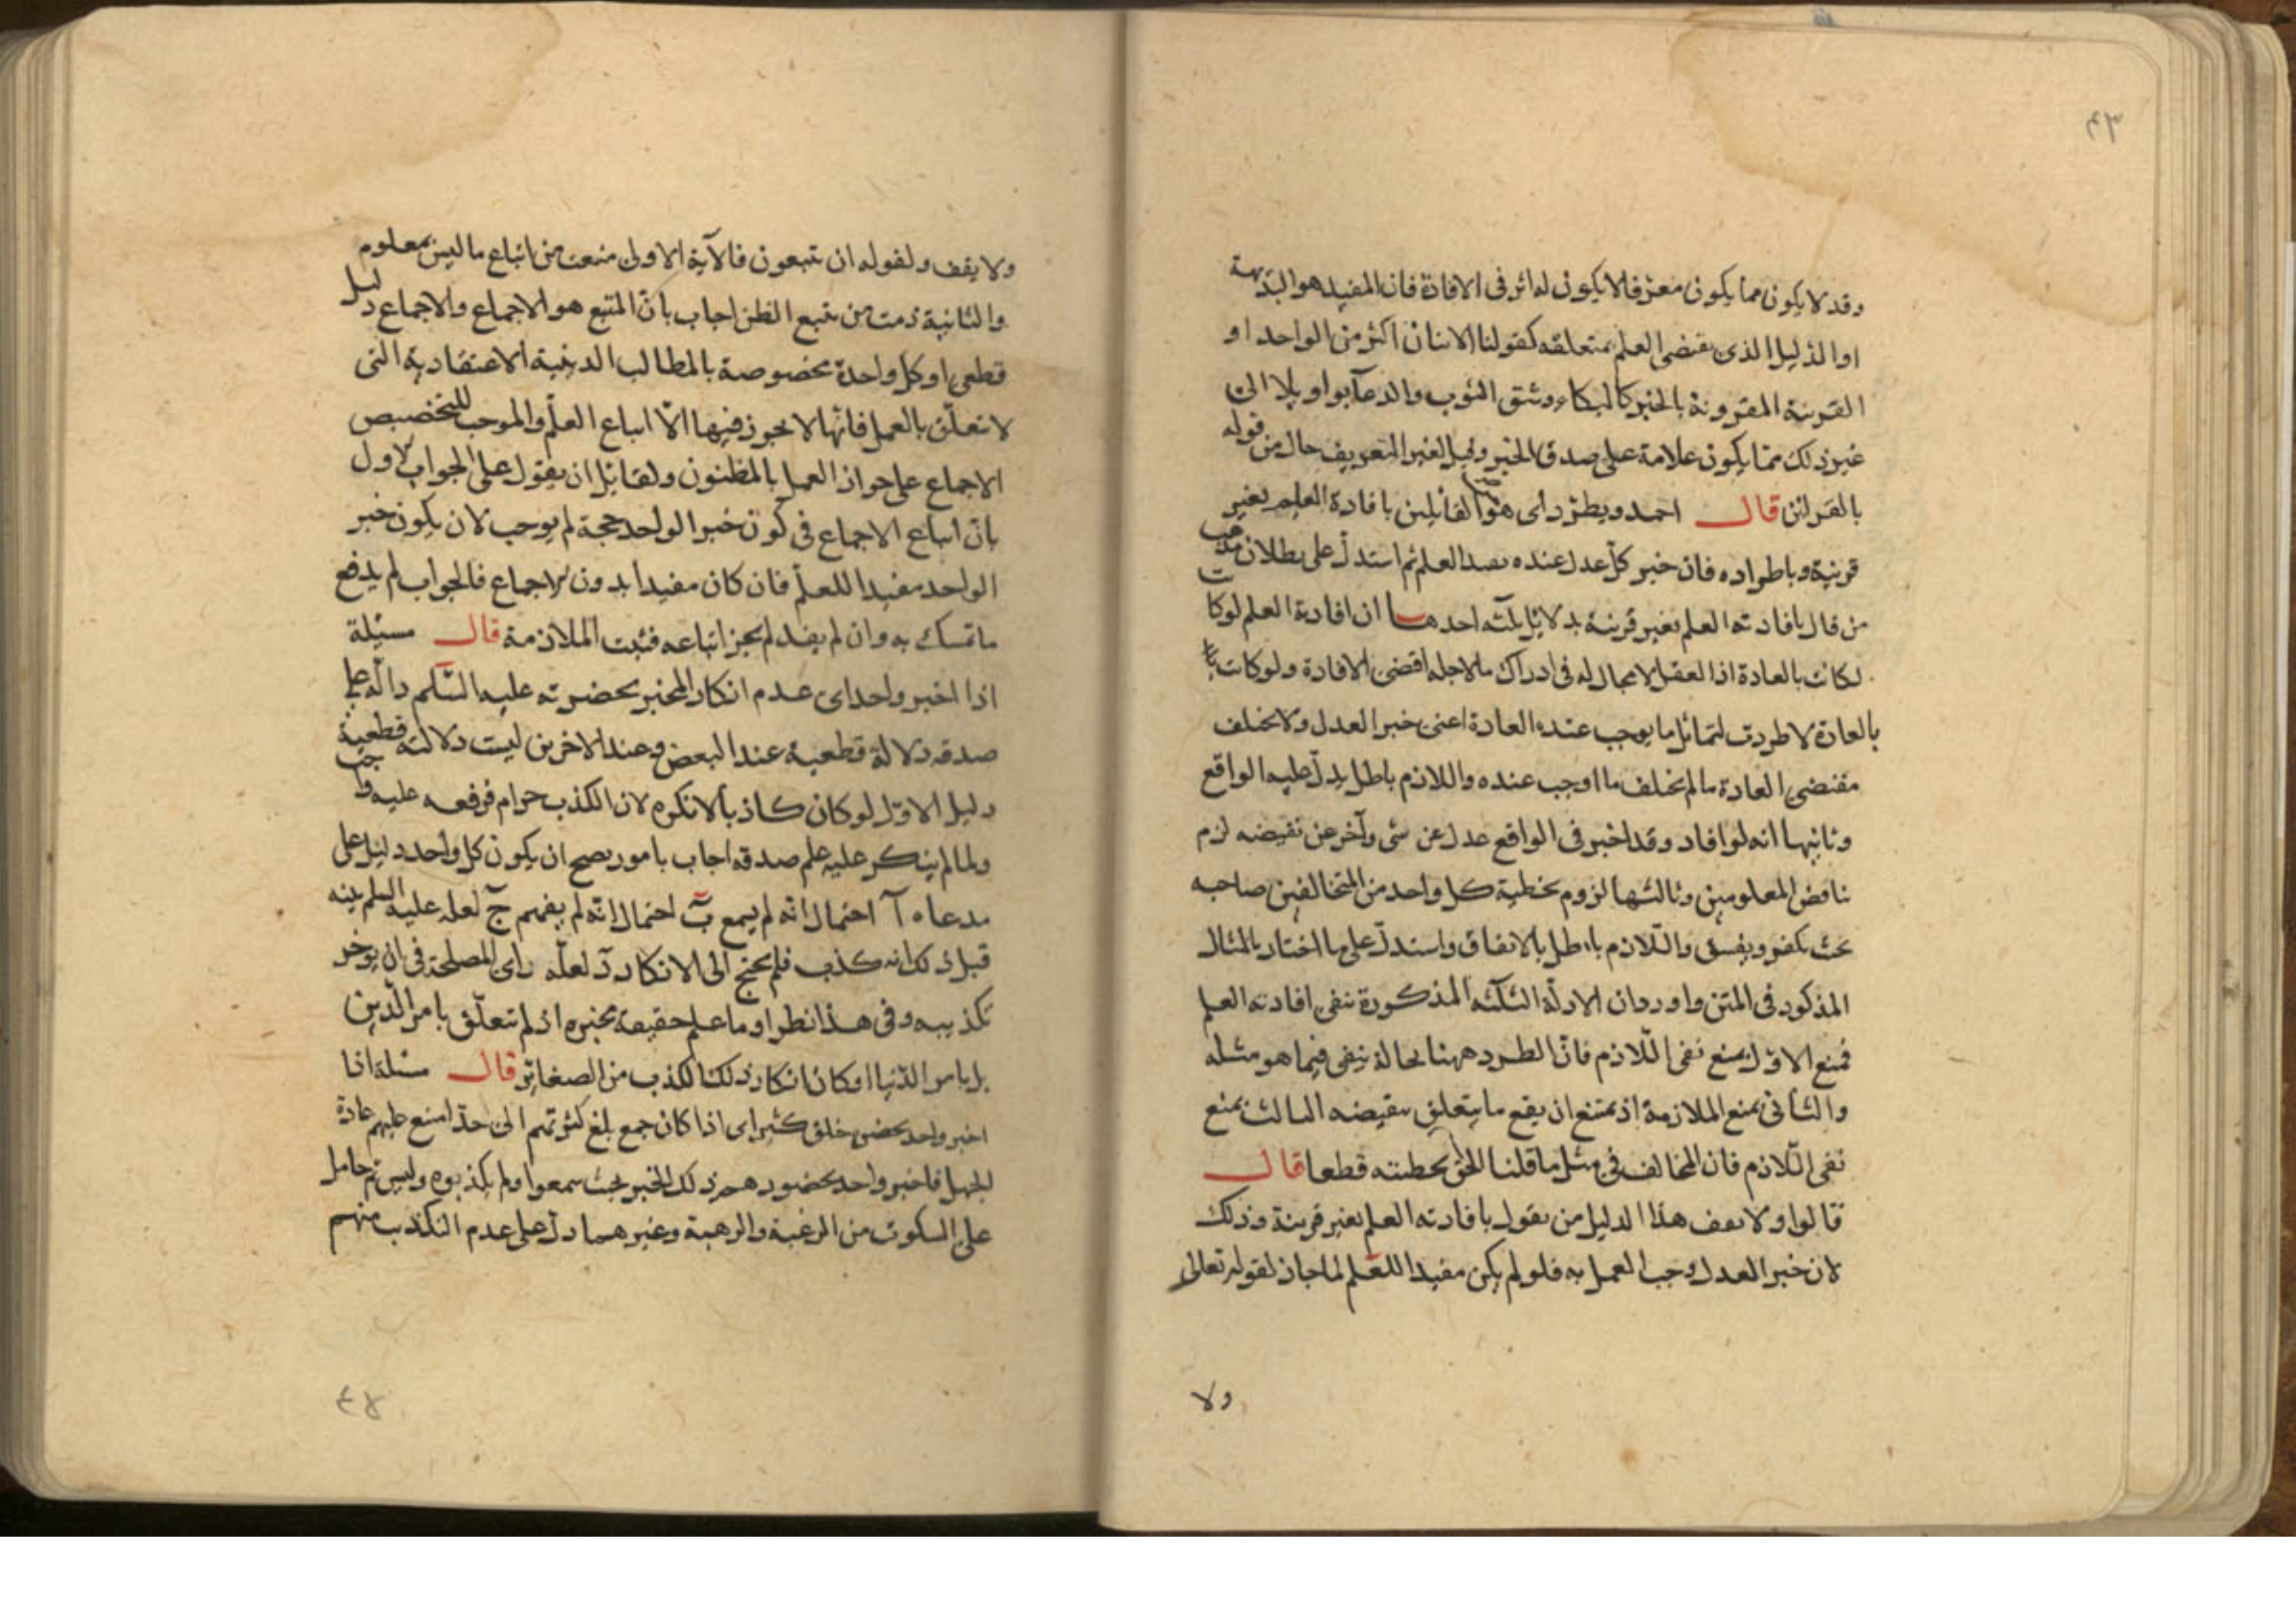 ٤٣
وقد لا يكون مما يكون معرفا لا يكون له اثر فى الافادة فان المفيد هو البديهة
او الدليل الذى يقتضى العلم بمتعلقه كقولنا الاثنان اكثر من الواحد او
القرينة المقرونة بالخبر كالبكاء وشق الثوب والدعا بواويلا الى
غير ذلك مما يكون علامة على صدق الخبر وقيل لغير التعريف حال من قوله
بالقرائن قال احمد ويطرد اى هؤلا القائلين بافادة العلم بغير
قرينة وباطراده فان خبر كل عدل عنده يفيد العلم ثم استدل على بطلان مذهب
من قال بافادته العلم بغير قرينة بدلايل ثلثه احدها ان افادة العلم لو كانت
لكانت بالعادة اذ العقل لا مجال له فى ادراك ما لاجله اقتضى الافادة ولو كانت
بالعادة لاطردت لتماثل ما يوجب عنده العادة اعنى خبر العدل ولا تخلف
مقتضى العادة ما لم تخلف ما اوجب عنده واللازم باطل يدل عليه الواقع
وثانيها انه لو افاد وقد اخبر فى الواقع عدل عن شى وآخر عن نقيضه لزم
تناقض المعلومين وثالثها لزوم تخطية كل واحد من المتخالفين صاحبه
بحث يكفر ويفسق واللازم باطل بالاتفاق واستدل على ما اختار بالمثال
المذكور فى المتن واورد ان الادلة الثلثه المذكورة تنفى افادته العلم
فمنع الاول بمنع نفى اللازم فان الطرد ههنا بحالة ينفى فيما هو مثله
والثانى بمنع الملازمة اذ يمتنع ان يقع ما يتعلق بنقيضه الثالث بمنع
نفى اللازم فان المخالف فى مثل ما قلنا الحق تخطيته قطعا قال
قالوا ولا يقف هذا الدليل من يقول بافادته العلم بغير قرينة وذلك
لان خبر العدل وجب العمل به فلو لم يكن مفيدا للعلم لما جاز لقوله تعالى
ولا
ولا يقف ولقوله ان تتبعون فالآية الاولى منعت من اتباع ما ليس بمعلوم
والثانية ذمت من يتبع الظن اجاب بان المتبع هو الاجماع والاجماع دليل
قطعى او كل واحدة مخصوصة بالمطالب الدينية الاعتقادية التى
لا تعلق بالعمل فانها لا يجوز فيها الا اتباع العلم والموجب للتخصيص
الاجماع على جواز العمل بالمظنون ولقائل ان يقول على الجواب الاول
بان اتباع الاجماع فى كون خبر الواحد حجة لم يوجب لان يكون خبر
الواحد مفيدا للعلم فان كان مفيدا بدون الاجماع فالجواب لم يدفع
ما تمسك به وان لم يفد لم يجز اتباعه فثبت الملازمة قال مسئلة
اذا اخبر واحد اى عدم انكار المخبر بحضرته عليه السلم دالة على
صدقه دلالة قطعية عند البعض وعند الاخرين ليست دلالته قطعية
دليل الاول لو كان كاذبا لانكره لان الكذب حرام فرفعه عليه واجب
ولما لم ينكر عليه علم صدقه اجاب بامور يصح ان يكون كل واحد دليل على
مدعاه آ احتمال انه لم يسمع ب احتمال انه لم يفهم ج لعله عليه السلم بينه
قبل ذلك انه كذب فلم يحتج الى الانكار د لعله راى المصلحة فى ان يوخر
تكذيبه وفى هذا نظر او ما علم حقيقة مخبره اذ لم تتعلق بامر الدين
بل بامر الدنيا او كان انكار ذلك الكذب من الصغاير قال مسئلة اذا
اخبر واحد بحضرة خلق كثير اى اذا كان جمع بلغ كثرتهم الى حد امتنع عليهم عادة
الجهل فاخبر واحد بحضورهم ذلك الخبر بحث سمعوا ولم يكذبوه وليس ثم حامل
على السكوت من الرغبة والرهبة وغيرهما دل على عدم التكذيب منهم